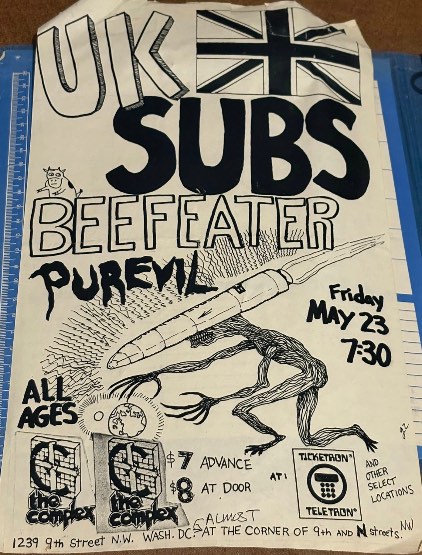 UK
SUBS
BEEFEATER
PUREVIL
Friday
MAY 23
7:30
ALL
AGES
the
complex
the
complex
$7 ADVANCE
$8 AT DOOR
AT:
TICKETRON
TELETRON
AND
OTHER
SELECT
LOCATIONS
ALMOST
1239 9th Street N.W. WASH. DC. AT THE CORNER OF 9th AND N streets. NW